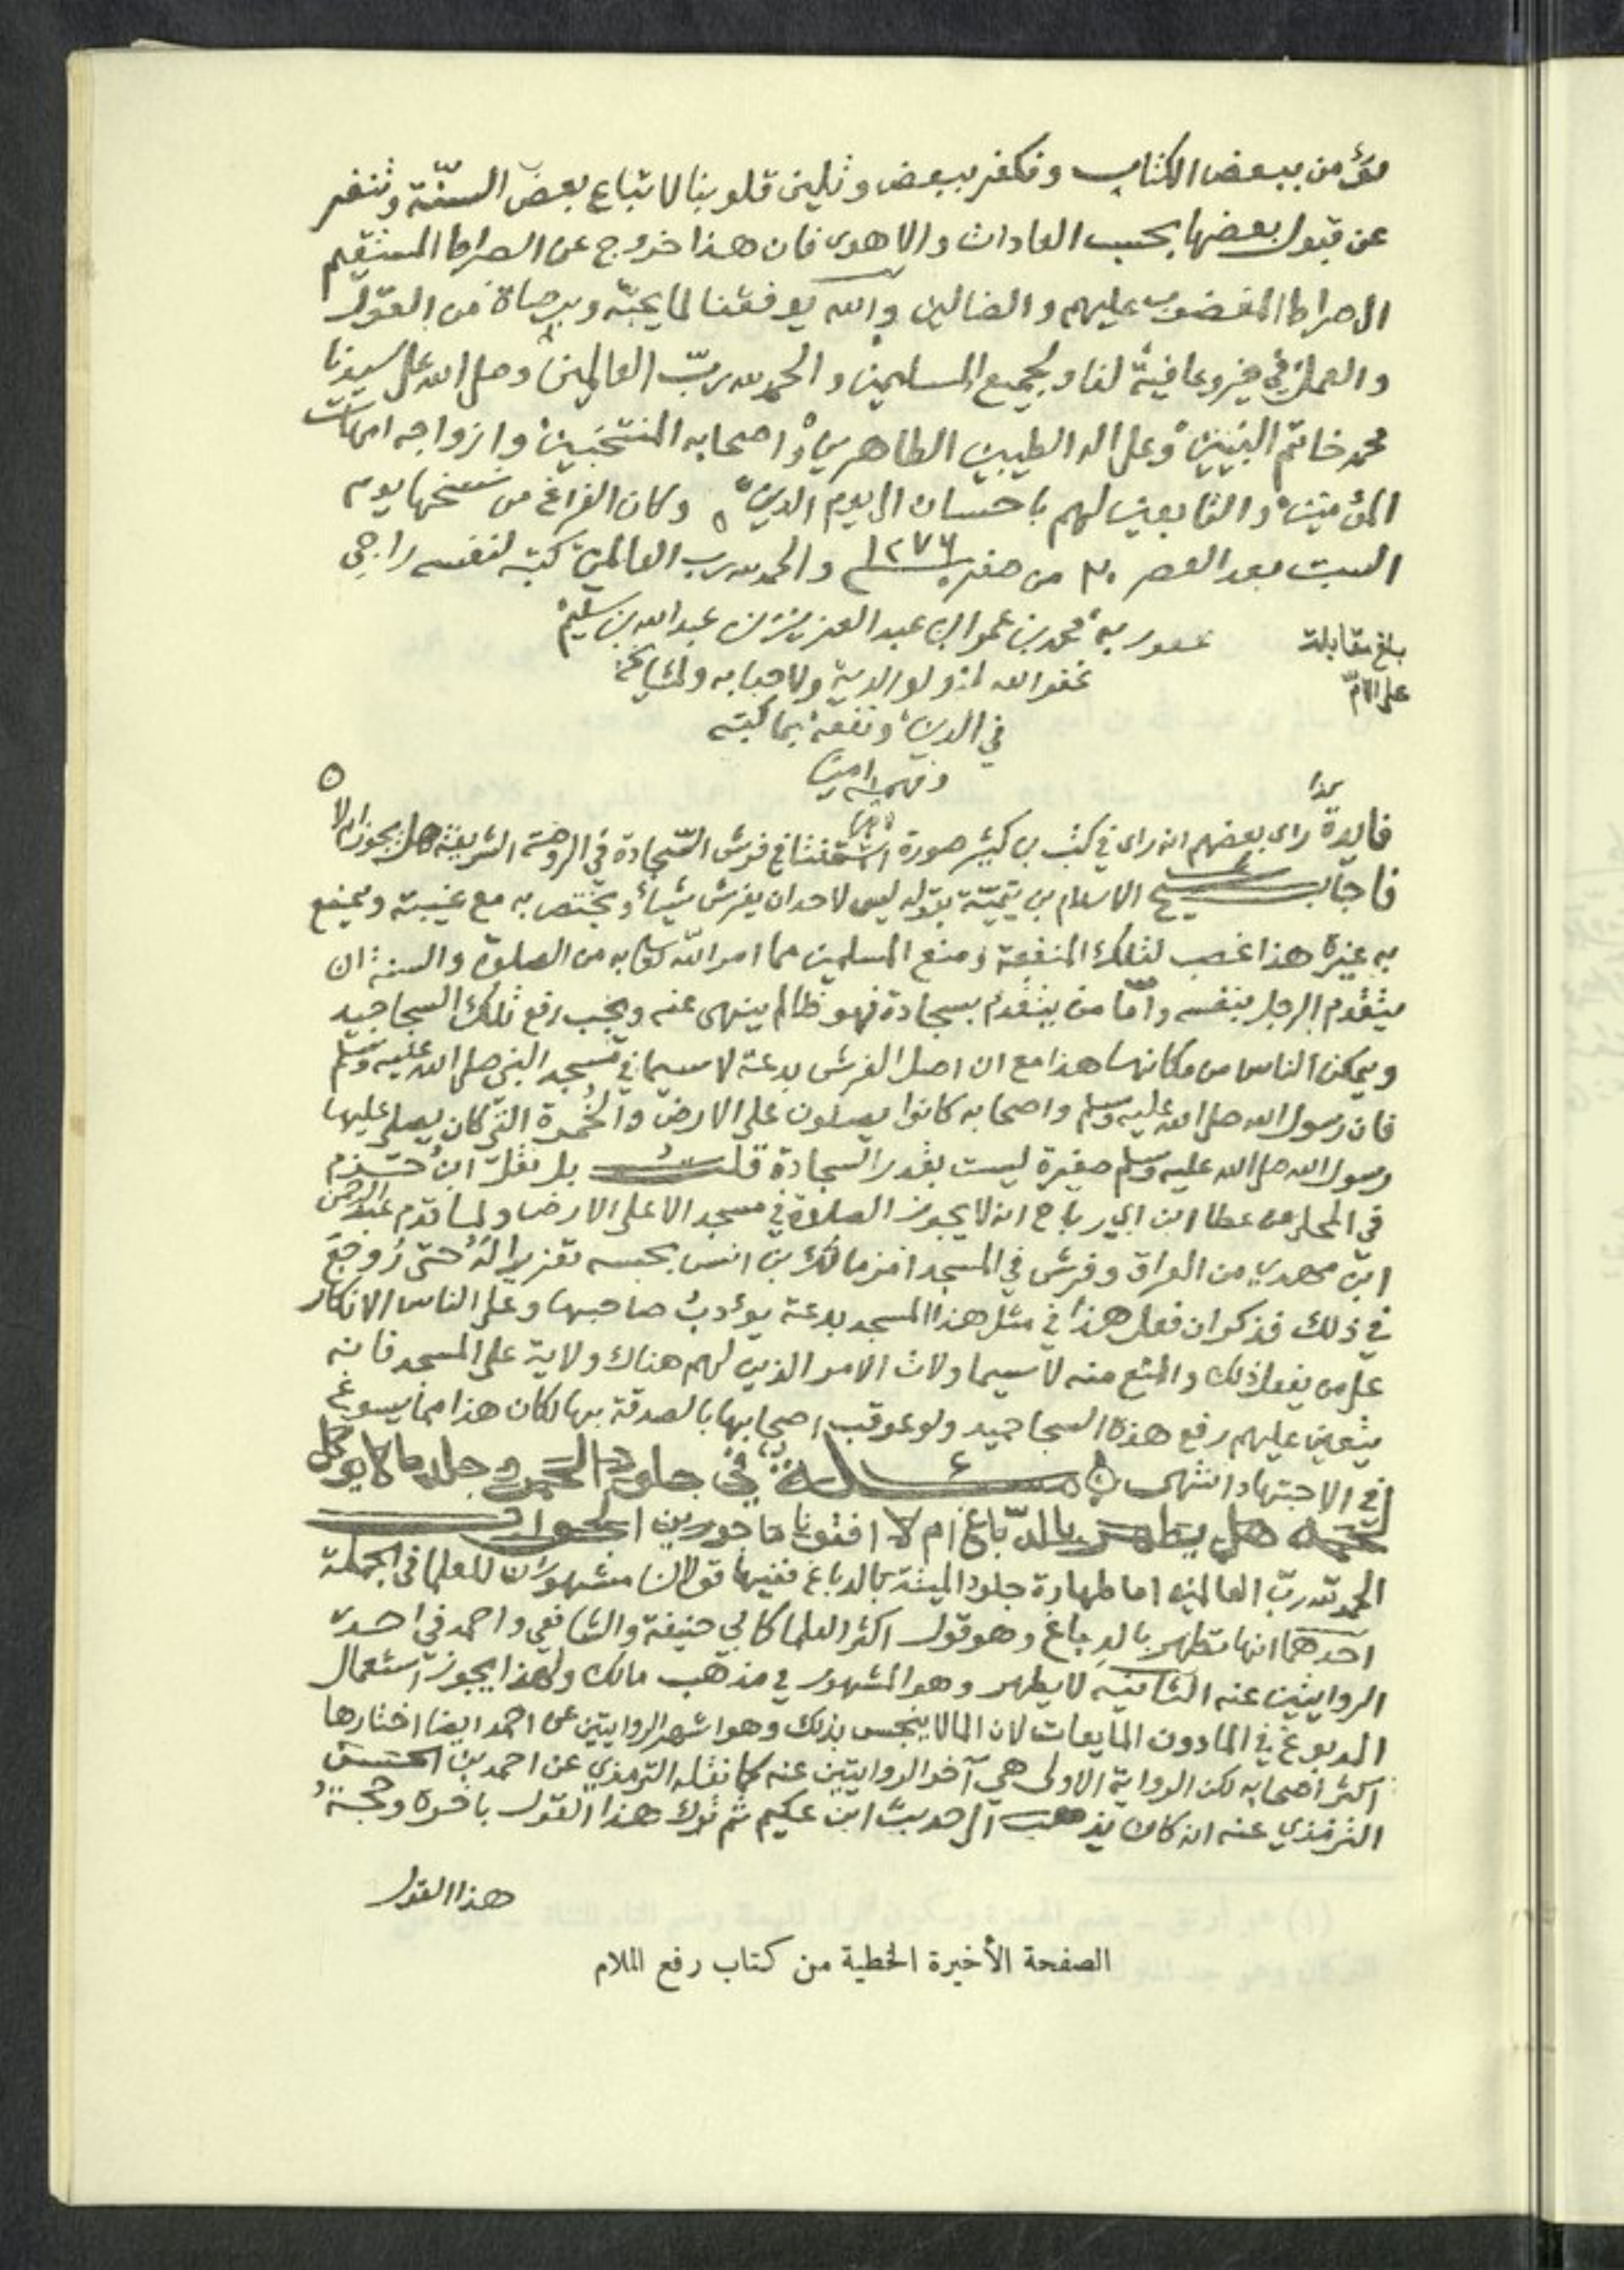 نؤمن ببعض الكتاب ونكفر ببعض وتلين قلوبنا لاتباع بعض السنة وتنفر
عن قبول بعضها بحسب العادات والاهوى فان هذا خروج عن الصراط المستقيم
الى صراط المغضوب عليهم والضالين والله يوفقنا لما يحبّه ويرضاه من القول
والعمل في خير وعافية لنا ولجميع المسلمين والحمد لله ربّ العالمين وصلى الله على سيدنا
محمد خاتم النبيين وعلى اله الطيبين الطاهرين واصحابه المنتخبين وازواجه امهات
المؤمنين والتابعين لهم باحسان الى يوم الدين وكان الفراغ من نسخها يوم
السبت بعد العصر ٢٠ من صفر ١٢٧٦ والحمد لله رب العالمين كتبه لنفسه راجي
عفو ربه محمد بن عمر ابن عبد العزيز بن عبد الله بن سليم
بلغ مقابلة
على الام
غفر الله له ولوالديه ولاحبابه ولمشايخه
في الدين ونفعه بما كتبه
وفهمه امين
فايدة راى بعضهم انه راى في كتب بن كثير صورة استفتا في فرش السّجادة في الروضة الشريفة هل يجوز ام لا
فاجاب شيخ الاسلام بن تيميّة بقوله ليس لاحد ان يفرش شيأ ويختص به مع غيبته ويمنع
به غيره هذا غصب لتلك المنفعة ومنع المسلمين مما امر الله تعالى به من الصلوة والسنة ان
يتقدم الرجل بنفسه وامّا من يتقدم بسجادة فهو ظالم ينهى عنه ويجب رفع تلك السجاجيد
ويمكن الناس من مكانها هذا مع ان اصل الفرش بدعة لا سيما في مسجد النبي صلى الله عليه وسلم
فان رسول الله صلى الله عليه وسلم واصحابه كانوا يصلون على الارض والخُمرة التي كان يصلي عليها
رسول الله صلى الله عليه وسلم صغيرة ليست بقدر السجادة قلت بل نقل ابن حزم
في المحلى عن عطا ابن ابي رباح انه لا يجوز الصلوة في مسجد الا على الارض ولما قدم عبد الرحمن
ابن مهدي من العراق وفرش في المسجد امر مالك بن انس بحبسه تعزيرا لهُ حتى رُوجعَ
في ذلك فذكر ان فعل هذا في مثل هذا المسجد بدعة يؤدبُ صاحبها وعلى الناس الانكار
على من يفعل ذلك والمنع منه لا سيما ولات الامر الذين لهم هناك ولاية على المسجد فانه
يتعين عليهم رفع هذه السجاجيد ولو عوقب اصحابها بالصدقة بها لكان هذا مما يسوغ
في الاجتهاد انتهى مسئلة في جلود الحمر وجلد ما لا يوكل
لحمه هل يطهر بالدّباغ ام لا افتونا ماجورين الجواب
الحمد لله ربّ العالمين اما طهارة جلود الميتة بالدباغ ففيها قولان مشهوران للعلما في الجملة
احدهما انها تطهر بالدباغ وهو قول اكثر العلما كابي حنيفة والشافعي واحمد في احدى
الروايتين عنه الثانية لا يطهر وهو المشهور في مذهب مالك ولهذا يجوز استعمال
المدبوغ في الما دون المايعات لان الما لا ينجس بذلك وهو اشهر الروايتين عن احمد ايضا اختارها
اكثر اصحابه لكن الرواية الاولى هي آخر الروايتين عنه كما نقله الترمذي عن احمد بن الحسن
الترمذي عنه انه كان يذهب الى حديث ابن عكيم ثم ترك هذا القول باخره وحجة
هذا القول
الصفحة الأخيرة الخطية من كتاب رفع الملام